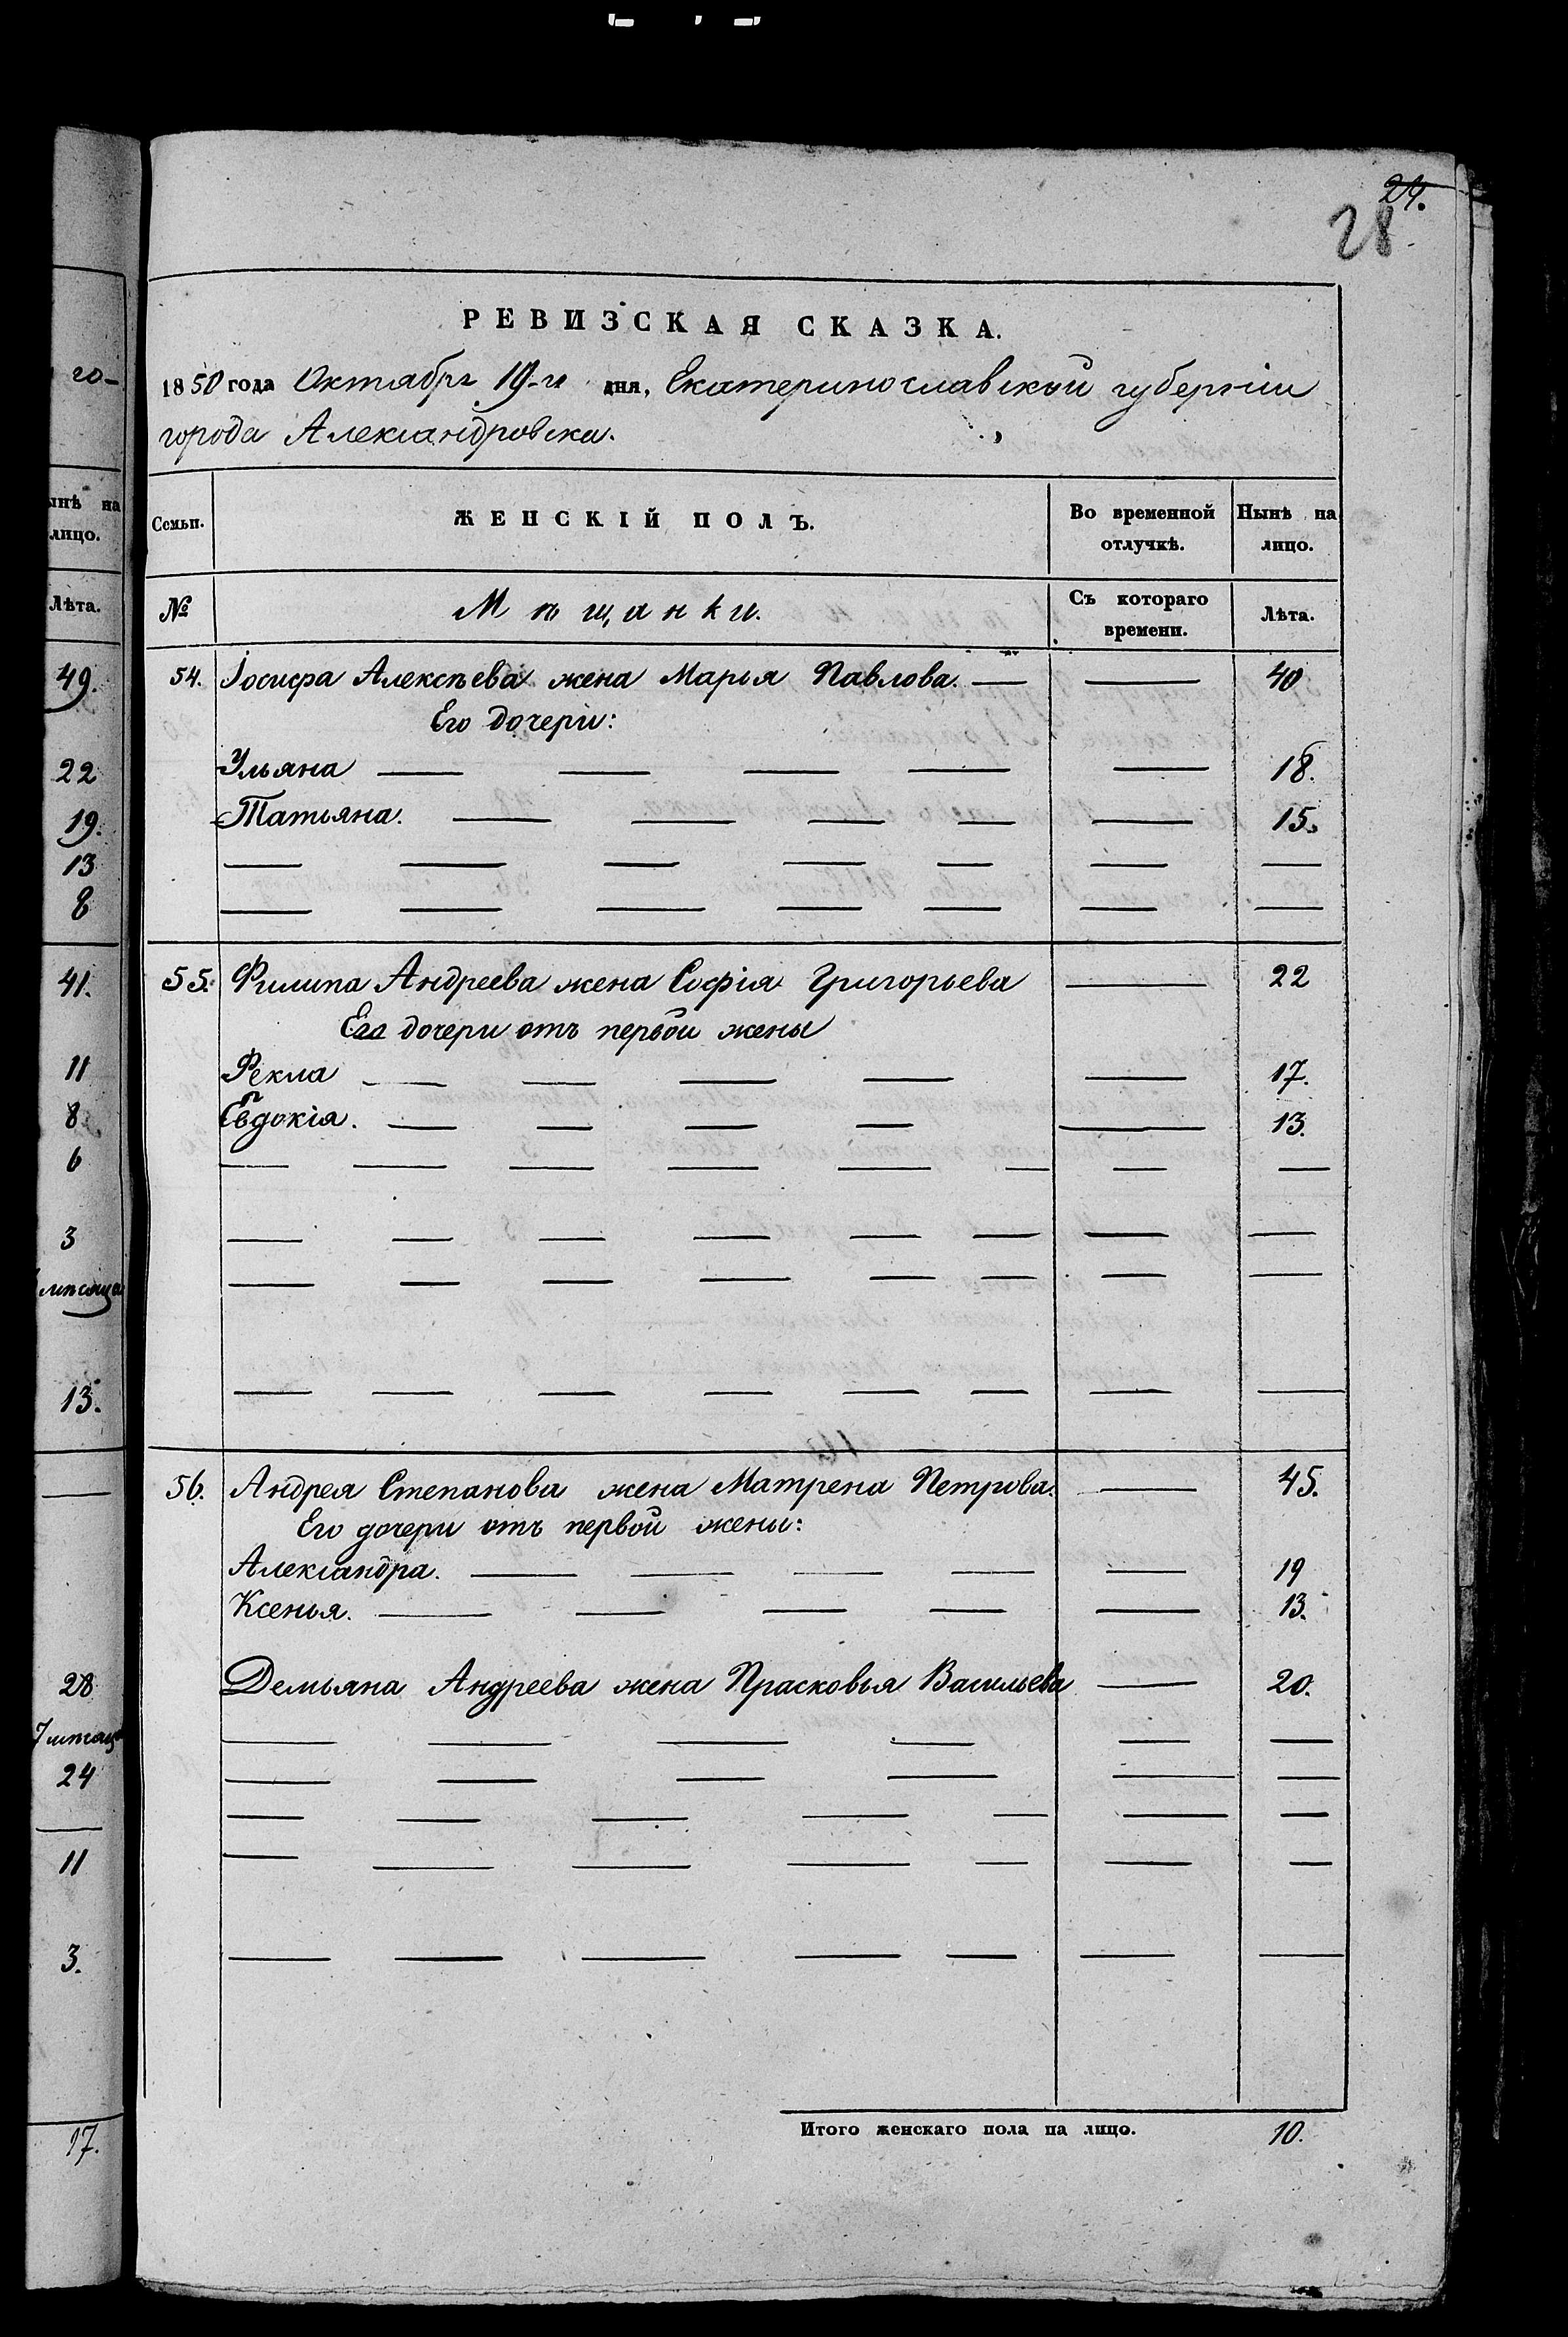 24.
28
РЕВИЗСКАЯ СКАЗКА.
1850 года Октября 19-го дня, Екатеринославской губерніи
города Александровска.
Семьи. ЖЕНСКІЙ ПОЛЪ. Во временной отлучкѣ. Нынѣ на лицо.
№ Мѣщанки. Съ котораго времени. Лѣта.
54. Іосифа Алексѣева жена Марья Павлова. — — 40
Его дочери:
Ульяна — — — — — 18.
Татьяна. — — — — — 15.
— — — — — — —
— — — — — — —
55. Филипа Андреева жена Софія Григорьева — 22
Его дочери отъ первой жены
Фекла — — — — — 17.
Евдокія. — — — — — 13.
— — — — — — — —
— — — — — — — —
— — — — — — — —
— — — — — — — —
56. Андрея Степанова жена Матрена Петрова. — 45.
Его дочери отъ первой жены:
Александра. — — — — — 19
Ксенья. — — — — — 13.
Демьяна Андреева жена Прасковья Васильева — 20.
— — — — — —
— — — — — —
— — — — — — —
— — — — — — —
— — — — — — —
Итого женскаго пола на лицо. 10.
го-
ынѣ на
лицо.
Лѣта.
49.
22
19.
13
8
41.
11
8
6
3
мѣсяца
13.
—
28
7 мѣсяц
24
—
11
3.
17.